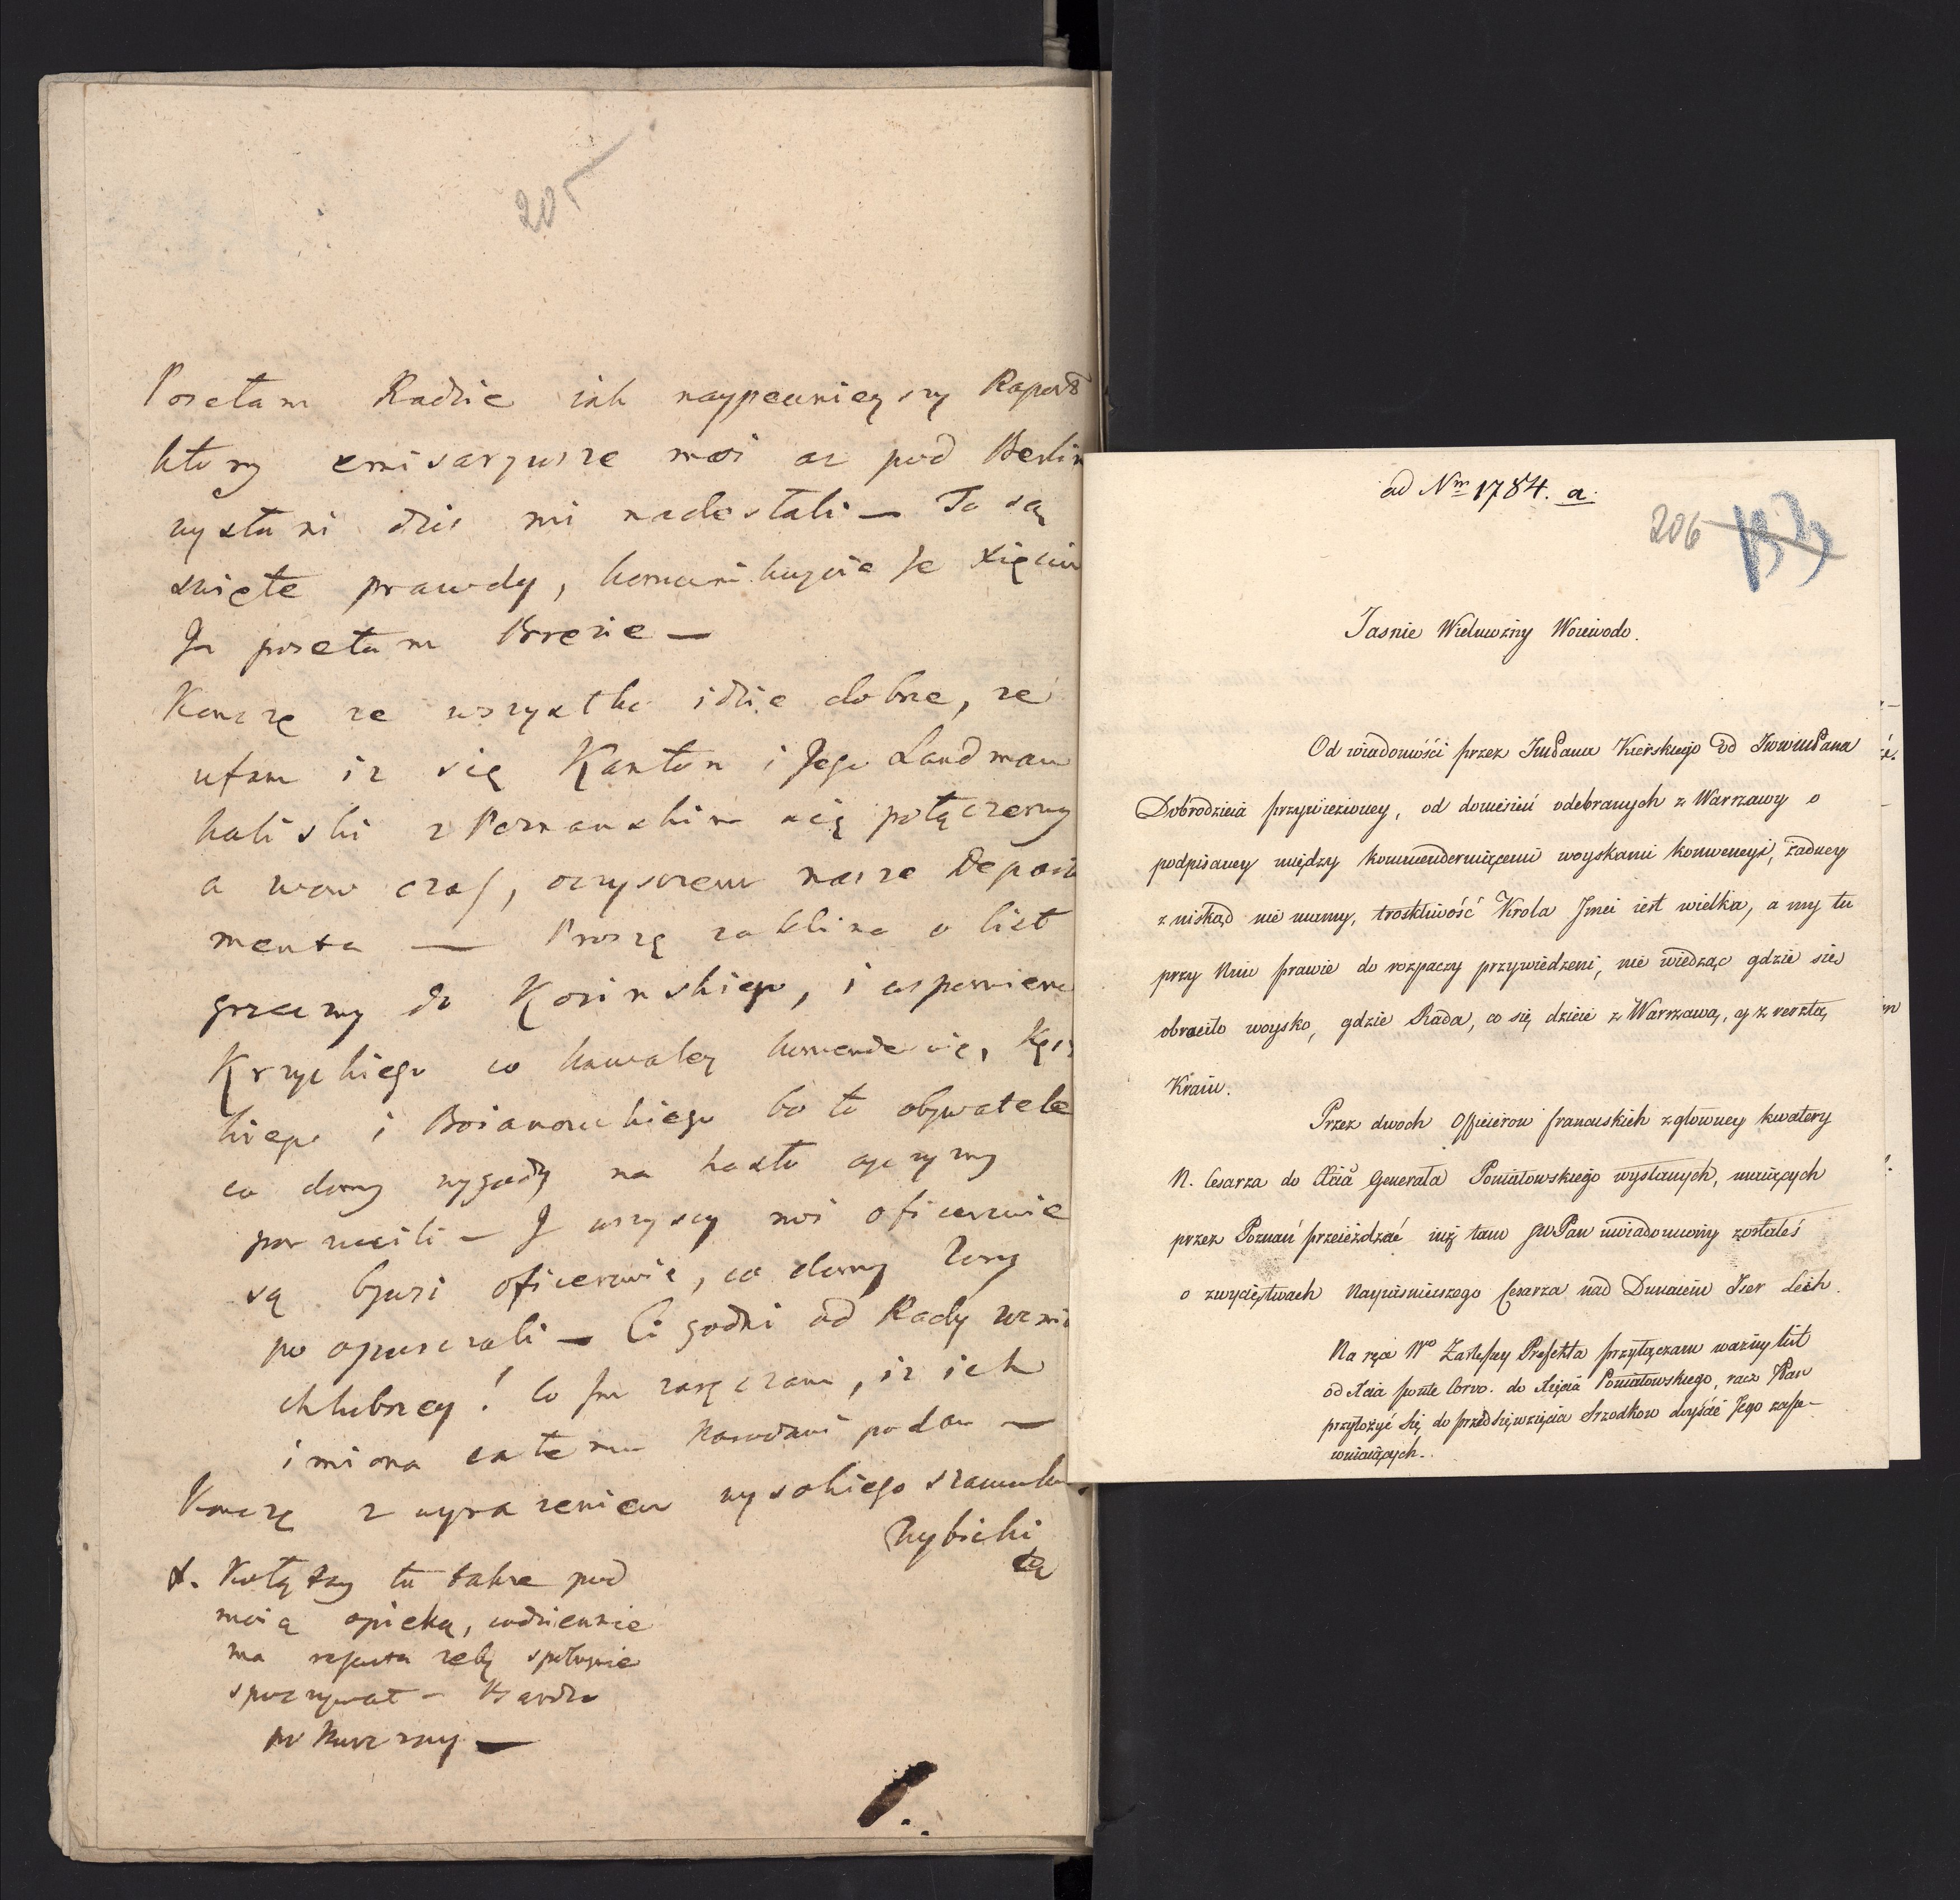 205
Posełam Radzie iak naypewnieyszy Raport
ktory emisaryusze moi aż pod Berlin
wysłani dziś mi nadesłali — To są
swięte prawdy, komunikuycie je Xięciu
Ja posełam Brezie —
Kończę że wszystko idzie dobrze, że
ufam iż się Kanton i Jego Landman
kaliski z Poznanskim się połączemy
a wow czas, oczysczem nasze Departa
menta — Proszę o list
grzeczny do Kosinskiego, i wspomienie
Krzyckiego co kawalery komenderuie,
kiego i Boianowskiego bo to obywatele
co domy wygody na hasło oyczyzny
porzucili — J wszyscy moi oficerowie
są bywsi oficerowie, co domy żony
poopuszczali — Ci godni od Rady wzmi
chlubney! Co Jm zaręczam, iż ich
imiona całemu Narodowi podam —
Kończę z wyrażeniem wysokiego szacunku
Wybicki
tu także pod
moią opieką, codziennie
ma żeby spokoynie
spoczywał — Bardzo
ad Nm 1784. a.
206
Jasnie Wielmożny Woiewodo.
Od wiadomości przez JmPana Kierskiego od JWWmPana
Dobrodzieia przywiezioney, od doniesień odebranych z Warszawy o
podpisaney między kommenderuiącemi woyskami konwencyi, żadney
z niskąd nie mamy, troskliwość Krola Jmci iest wielka, a my tu
przy Nim prawie do rozpaczy przywiedzeni, nie wiedząc gdzie się
obrociło woysko, gdzie Rada, co się dzieie z Warszawą, y z resztą
Kraiu.
Przez dwoch Officierow francuskich z głowney kwatery
N. Cesarza do Xcia Generała Poniatowskiego wysłanych, maiących
przez Poznań przeieżdzać iuż tam JWPan uwiadomiony zostałeś
o zwycięstwach Nayiasnieyszego Cesarza nad Dunaiem Iser Lech.
Na ręce Wo Prefekta przyłączam ważny list
od Xcia ponte Corvo. do Xięcia Poniatowskiego, racz Pan
przyłożyć się do przedsięwzięcia srzodkow doyście Jego zape-
wniaiących.